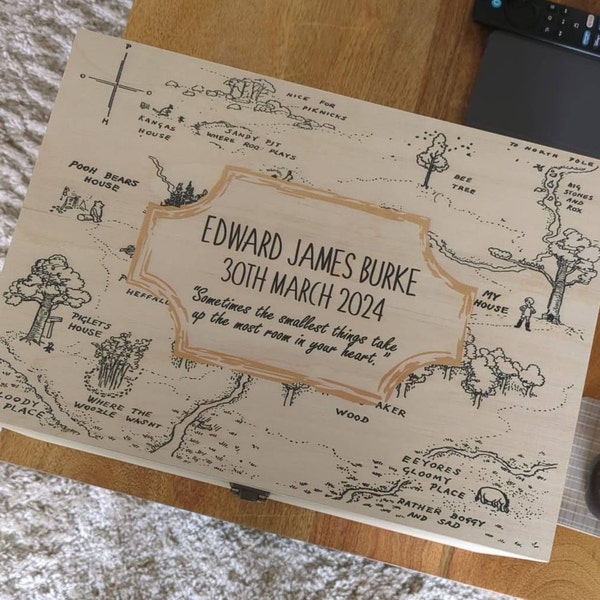 P
O
O
H
NICE FOR
PIKNICKS
KANGAS
HOUSE
SANDY PIT
WHERE ROO PLAYS
TO NORTH POLE
BIG
STONES
AND
ROX
BEE
TREE
POOH BEARS
HOUSE
EDWARD JAMES BURKE
30TH MARCH 2024
"Sometimes the smallest things take
up the most room in your heart."
MY
HOUSE
HEFFAL
PIGLETS
HOUSE
WHERE THE
WOOZLE WASNT
LOODY
PLACE
AKER
WOOD
EEYORES
GLOOMY
PLACE
RATHER BOGGY
AND SAD